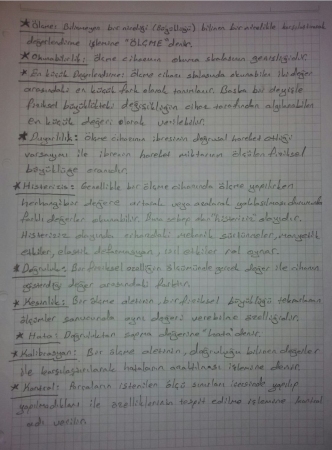 * Ölçme: Bilinmeyen bir niceliği (Büyüklüğü) bilinen bir nicelikle karşılaştırarak
değerlendirme işlemine "ÖLÇME" denir.
* Okunabilirlik: Ölçme cihazının okuma skalasının genişliğidir.
* En küçük Değerlendirme: Ölçme cihazı skalasında okunabilen iki değer
arasındaki en küçük fark olarak tanımlanır. Başka bir deyişle
fiziksel büyüklükteki değişikliğin cihaz tarafından algılanabilen
en küçük değeri olarak verilebilir.
* Duyarlılık: Ölçme cihazının ibresinin doğrusal hareket ettiği
varsayımı ile ibrenin hareket miktarının ölçülen fiziksel
büyüklüğe oranıdır.
* Histerisiz: Genellikle bir ölçme cihazında ölçme yapılırken
herhangi bir değere artarak veya azalarak yaklaşılması durumunda
farklı değerler okunabilir. Buna sebep olan "histerisiz" olayıdır.
Histerisiz olayında cihazdaki mekanik sürtünmeler, manyetik
etkiler, elastik deformasyon, ısıl etkiler rol oynar.
* Doğruluk: Bir fiziksel özelliğin ölçümünde gerçek değer ile cihazın
gösterdiği değer arasındaki farktır.
* Kesinlik: Bir ölçme aletinin, bir fiziksel büyüklüğü tekrarlanan
ölçümler sonucunda aynı değeri verebilme özelliğidir.
* Hata: Doğruluktan sapma değerine "hata" denir.
* Kalibrasyon: Bir ölçme aletinin, doğruluğu bilinen değerler
ile karşılaştırılarak hataların azaltılması işlemine denir.
* Kontrol: Parçaların istenilen ölçü sınırları içerisinde yapılıp
yapılmadıkları ile özelliklerinin tespit edilme işlemine kontrol
adı verilir.